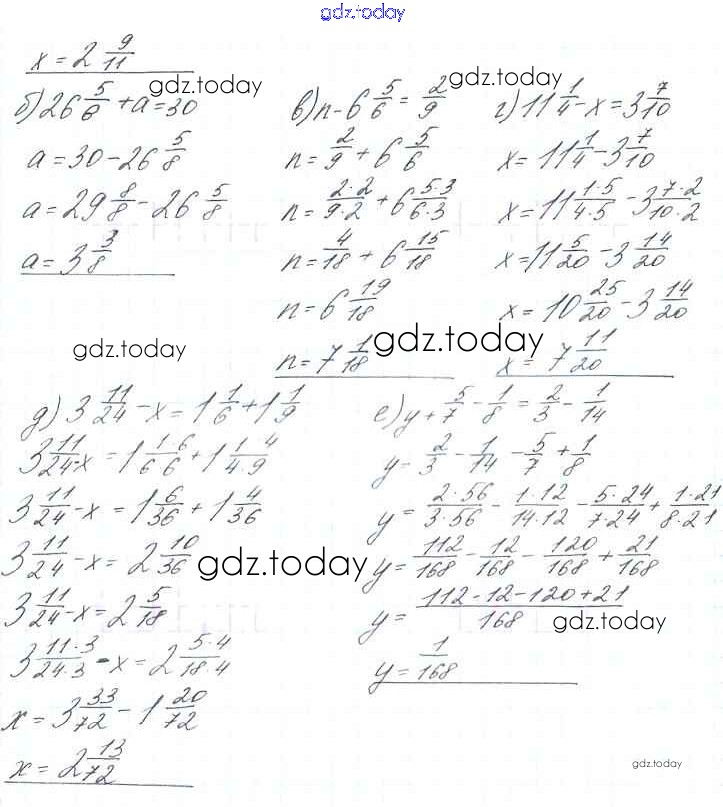 gdz.today
x = 2 9/11
gdz.today
gdz.today
б) 26 5/8 + a = 30
a = 30 - 26 5/8
a = 29 8/8 - 26 5/8
a = 3 3/8
в) n - 6 5/6 = 2/9
n = 2/9 + 6 5/6
n = 2·2/9·2 + 6 5·3/6·3
n = 4/18 + 6 15/18
n = 6 19/18
n = 7 1/18
г) 11 1/4 - x = 3 7/10
x = 11 1/4 - 3 7/10
x = 11 1·5/4·5 - 3 7·2/10·2
x = 11 5/20 - 3 14/20
x = 10 25/20 - 3 14/20
x = 7 11/20
gdz.today
gdz.today
д) 3 11/24 - x = 1 1/6 + 1 1/9
3 11/24 - x = 1 1·6/6·6 + 1 1·4/4·9
3 11/24 - x = 1 6/36 + 1 4/36
3 11/24 - x = 2 10/36
3 11/24 - x = 2 5/18
3 11·3/24·3 - x = 2 5·4/18·4
x = 3 33/72 - 1 20/72
x = 2 13/72
gdz.today
е) y + 5/7 - 1/8 = 2/3 - 1/14
y = 2/3 - 1/14 - 5/7 + 1/8
y = 2·56/3·56 - 1·12/14·12 - 5·24/7·24 + 1·21/8·21
y = 112/168 - 12/168 - 120/168 + 21/168
y = 112-12-120+21/168
y = 1/168
gdz.today
gdz.today